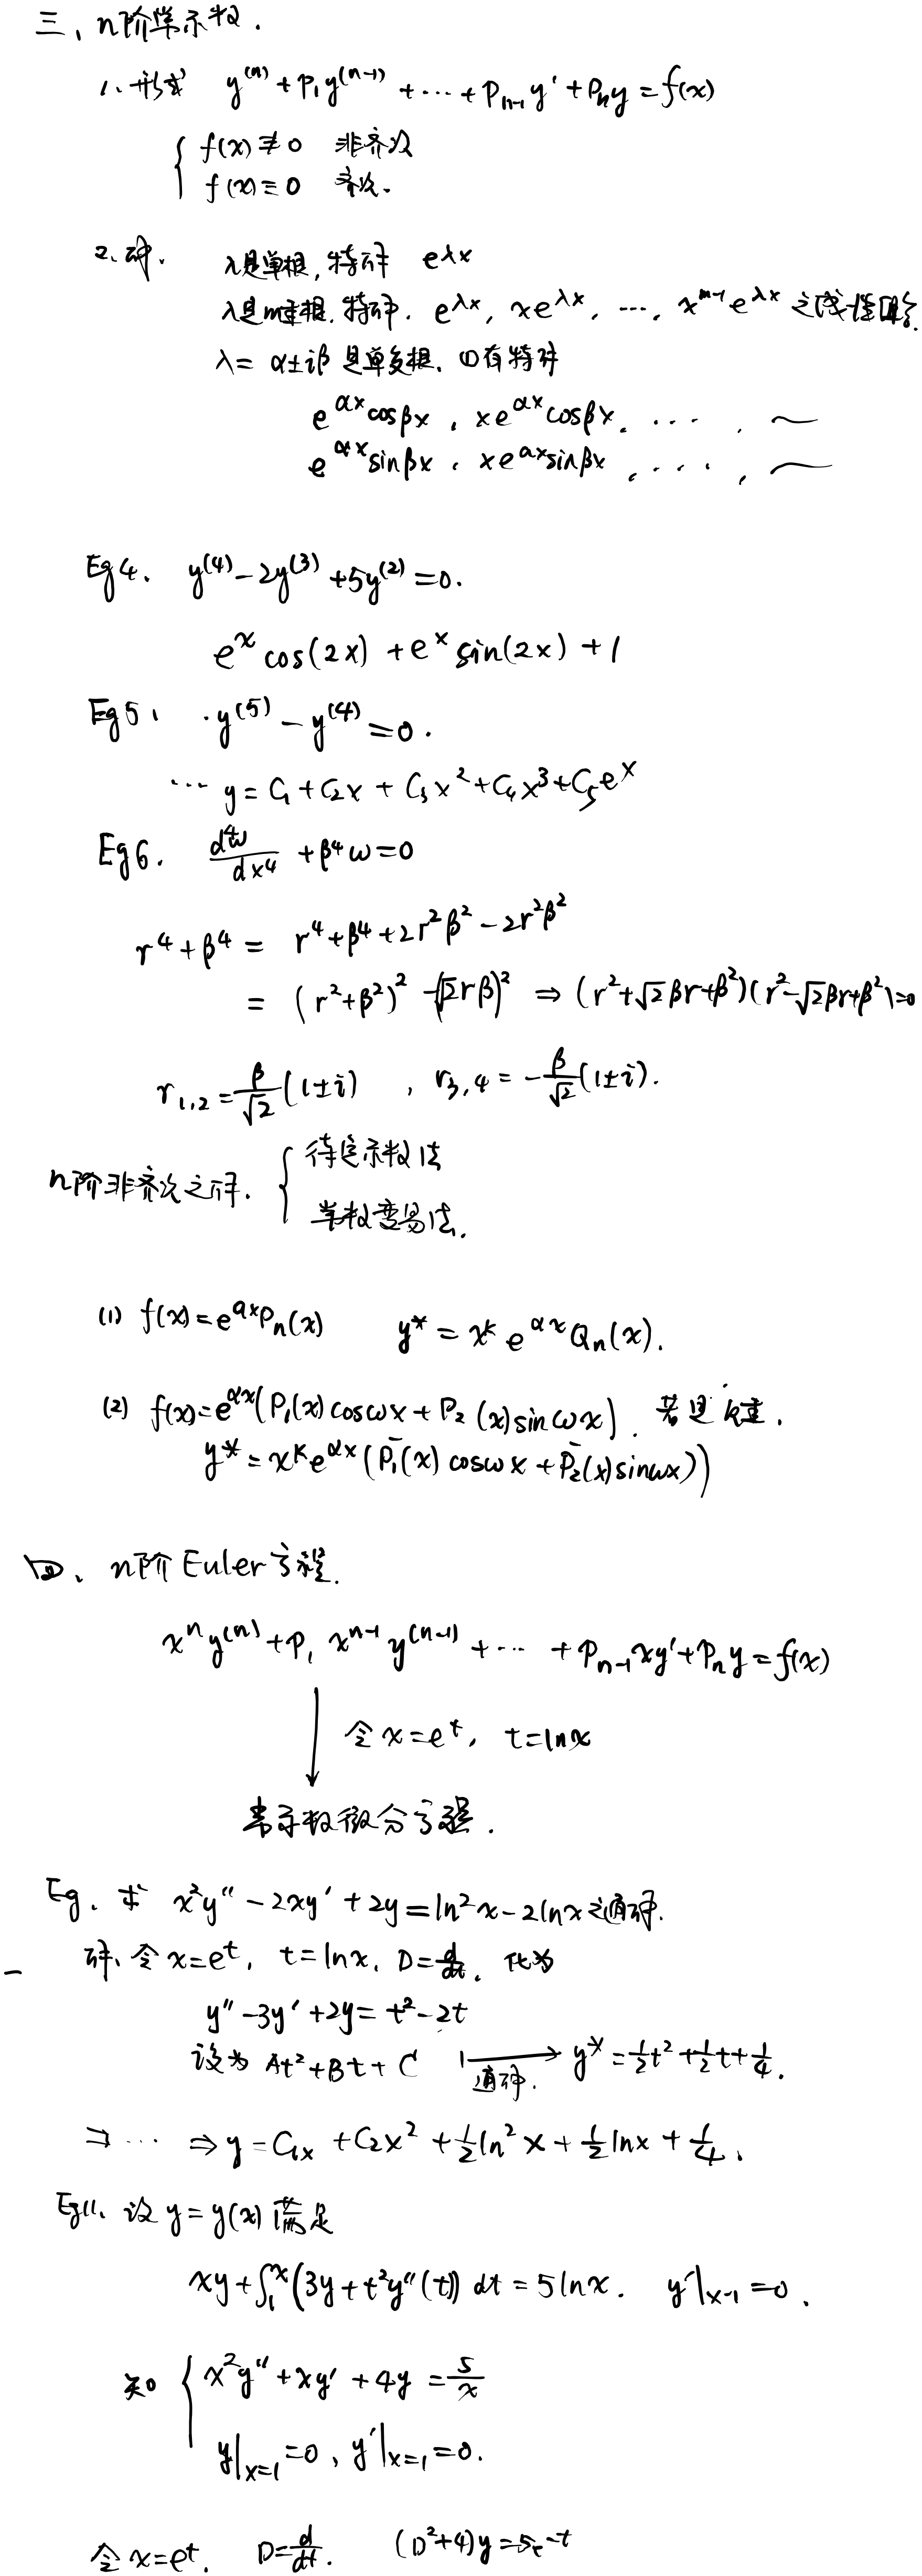 三、n阶常系数.
1、形式 y^{(n)} + P_1 y^{(n-1)} + ⋯ + P_{n-1} y' + P_n y = f(x)
{ f(x) ≢ 0 非齐次
f(x) ≡ 0 齐次.
2、解. λ是单根, 特解 e^{λx}
λ是m重根. 特解. e^{λx}, xe^{λx}, ⋯, x^{m-1}e^{λx} 之线性组合.
λ = α±iβ 是单复根.
e^{αx}cosβx, xe^{αx}cosβx, ⋯, ~
e^{αx}sinβx, xe^{αx}sinβx, ⋯, ~
Eg4. y^{(4)} - 2y^{(3)} + 5y^{(2)} = 0.
e^x cos(2x) + e^x sin(2x) + 1
Eg5、 y^{(5)} - y^{(4)} = 0.
⋯ y = C_1 + C_2x + C_3x^2 + C_4x^3 + C_5e^x
Eg6. \frac{d^4w}{dx^4} + β^4w = 0
r^4 + β^4 = r^4 + β^4 + 2r^2β^2 - 2r^2β^2
= (r^2+β^2)^2 - (√2rβ)^2 ⇒ (r^2+√2βr+β^2)(r^2-√2βr+β^2)=0
r_{1,2} = \frac{β}{√2}(1±i) , r_{3,4} = -\frac{β}{√2}(1±i).
n阶非齐次之解. { 待定系数法
常数变易法.
(1) f(x) = e^{αx}P_n(x) y* = x^k e^{αx} Q_n(x).
(2) f(x) = e^{αx}(P_1(x)cosωx + P_2(x)sinωx). 若是k重.
y* = x^k e^{αx}(\bar{P_1}(x)cosωx + \bar{P_2}(x)sinωx))
四、n阶Euler方程.
x^n y^{(n)} + P_1 x^{n-1} y^{(n-1)} + ⋯ + P_{n-1}xy' + P_n y = f(x)
↓ 令x = e^t, t = lnx
常系数微分方程.
Eg. 求 x^2y'' - 2xy' + 2y = ln^2x - 2lnx 之通解.
解、令x = e^t, t = lnx. D = \frac{d}{dt}. 化为
y'' - 3y' + 2y = t^2 - 2t
设为 At^2 + Bt + C → 通解. y* = \frac{1}{2}t^2 + \frac{1}{2}t + \frac{1}{4}.
⇒ ⋯ ⇒ y = C_1x + C_2x^2 + \frac{1}{2}ln^2x + \frac{1}{2}lnx + \frac{1}{4}.
Eg11. 设y = y(x)满足
xy + ∫_1^x(3y + t^2y''(t)) dt = 5lnx. y'|_{x=1} = 0.
知 { x^2y'' + xy' + 4y = \frac{5}{x}
y|_{x=1} = 0, y'|_{x=1} = 0.
令x = e^t. D = \frac{d}{dt}. (D^2+4)y = 5e^{-t}